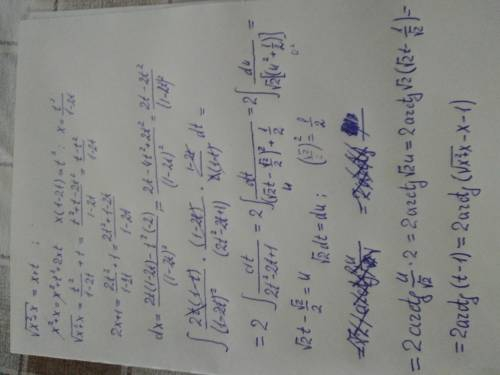 √(x²+x) = x+t ;
x²+x = x²+t²+2xt    x(1-2t)=t² ;    x = t²/(1-2t)
√(x²+x) = t²/(1-2t) + t = (t²+t-2t²)/(1-2t) = (t-t²)/(1-2t)
2x+1 = 2t²/(1-2t) + 1 = (2t²+1-2t)/(1-2t)
dx = (2t(1-2t)-t²(-2))/(1-2t)² = (2t-4t²+2t²)/(1-2t)² = (2t-2t²)/(1-2t)²
∫ 2t(1-t)/(1-2t)² · (1-2t)/(2t²-2t+1) · (1-2t)/t(1-t) dt =
= 2∫ dt/(2t²-2t+1) = 2∫ dt/((√2t-√2/2)²+1/2) = 2∫ du/(√2[u²+1/2)]) =
√2t - √2/2 = u    √2dt = du ;    (1/√2)² = 1/2
= 2arctg u/(1/√2) · 2 = 2arctg√2u = 2arctg√2(√2t - 1/√2) =
= 2arctg(t-1) = 2arctg(√(x²+x) - x - 1)